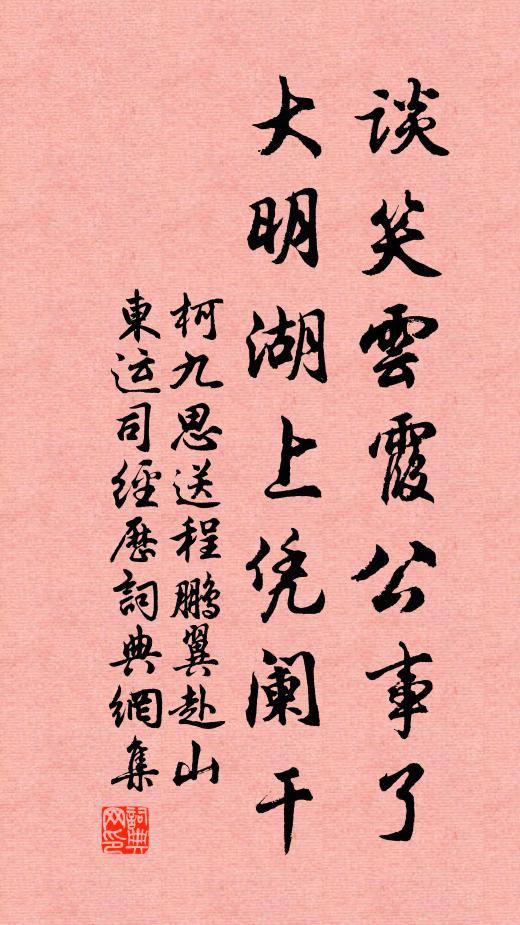 谈笑雲霞公事了
大明湖上凭阑干
柯九思送程鹏翼赴山
東运司經歷詞典網集
詞典网印